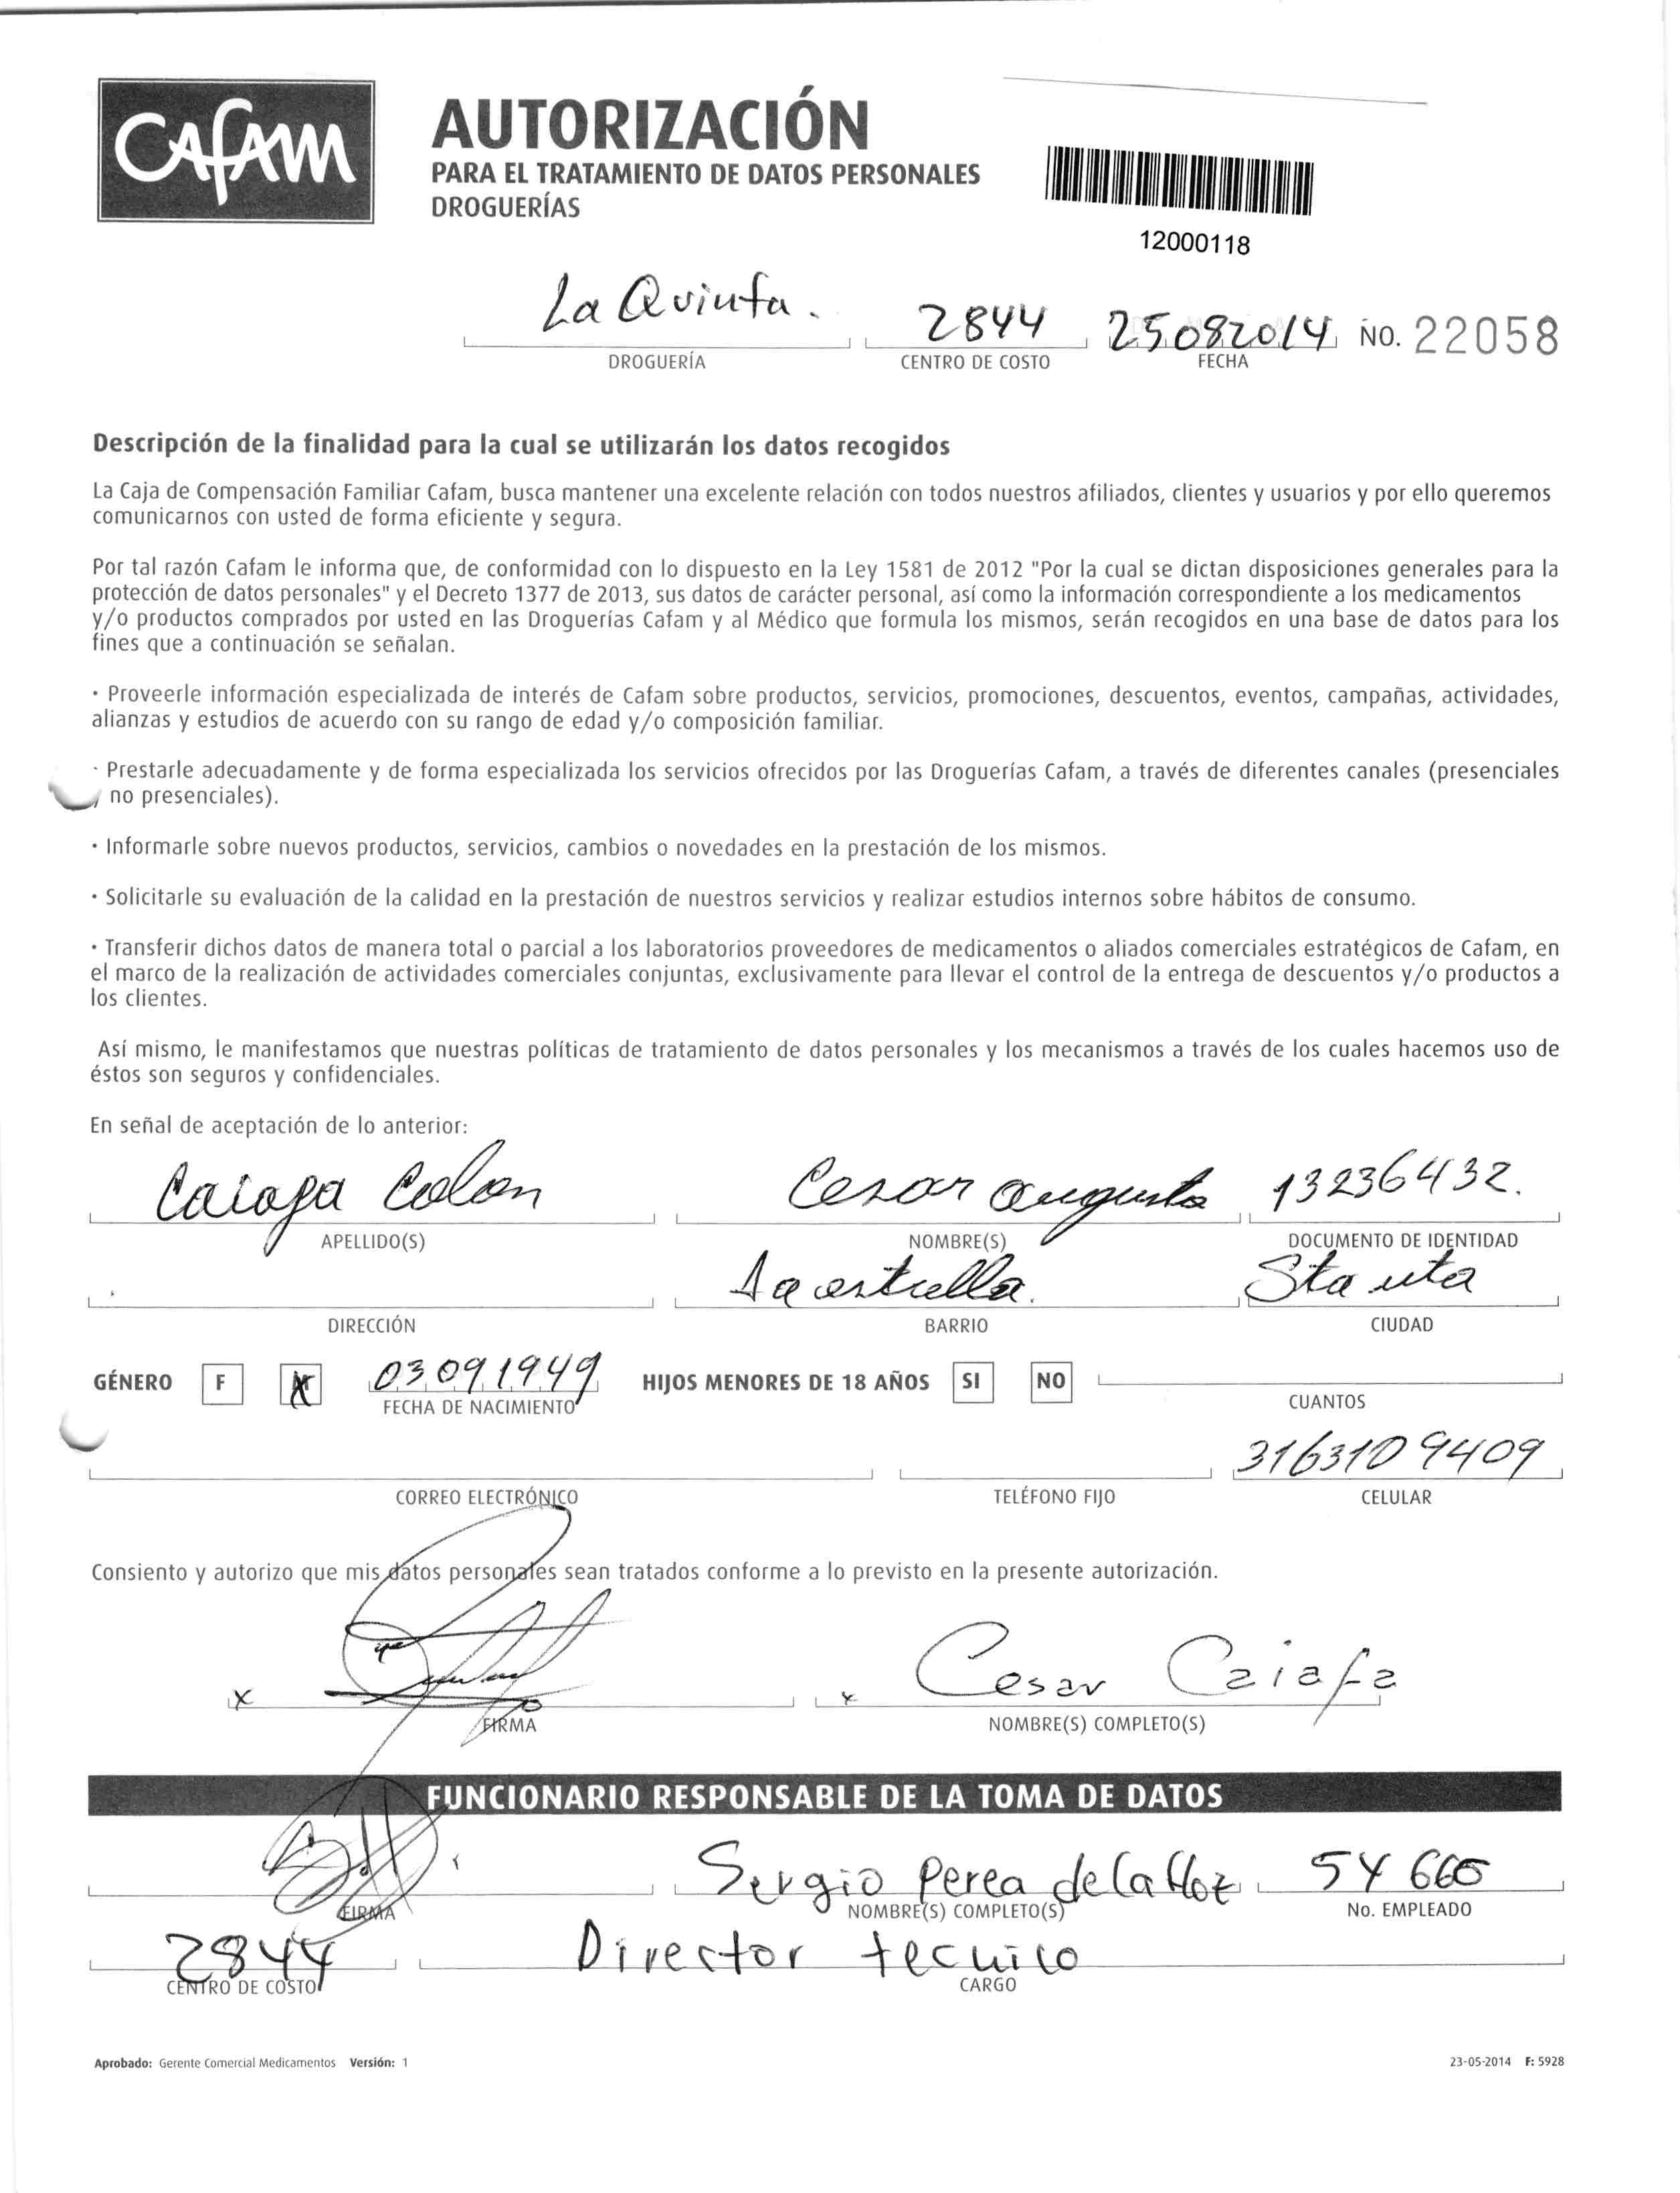 CAFAM
AUTORIZACIÓN
PARA EL TRATAMIENTO DE DATOS PERSONALES
DROGUERÍAS
12000118
La Quinta. 2844 25082014 NO. 22058
DROGUERÍA CENTRO DE COSTO FECHA
Descripción de la finalidad para la cual se utilizarán los datos recogidos
La Caja de Compensación Familiar Cafam, busca mantener una excelente relación con todos nuestros afiliados, clientes y usuarios y por ello queremos
comunicarnos con usted de forma eficiente y segura.
Por tal razón Cafam le informa que, de conformidad con lo dispuesto en la Ley 1581 de 2012 "Por la cual se dictan disposiciones generales para la
protección de datos personales" y el Decreto 1377 de 2013, sus datos de carácter personal, así como la información correspondiente a los medicamentos
y/o productos comprados por usted en las Droguerías Cafam y al Médico que formula los mismos, serán recogidos en una base de datos para los
fines que a continuación se señalan.
· Proveerle información especializada de interés de Cafam sobre productos, servicios, promociones, descuentos, eventos, campañas, actividades,
alianzas y estudios de acuerdo con su rango de edad y/o composición familiar.
· Prestarle adecuadamente y de forma especializada los servicios ofrecidos por las Droguerías Cafam, a través de diferentes canales (presenciales
no presenciales).
· Informarle sobre nuevos productos, servicios, cambios o novedades en la prestación de los mismos.
· Solicitarle su evaluación de la calidad en la prestación de nuestros servicios y realizar estudios internos sobre hábitos de consumo.
· Transferir dichos datos de manera total o parcial a los laboratorios proveedores de medicamentos o aliados comerciales estratégicos de Cafam, en
el marco de la realización de actividades comerciales conjuntas, exclusivamente para llevar el control de la entrega de descuentos y/o productos a
los clientes.
Así mismo, le manifestamos que nuestras políticas de tratamiento de datos personales y los mecanismos a través de los cuales hacemos uso de
éstos son seguros y confidenciales.
En señal de aceptación de lo anterior:
Caiafa Colon Cesar Augusto 13236432.
APELLIDO(S) NOMBRE(S) DOCUMENTO DE IDENTIDAD
La estrella. Sta
DIRECCIÓN BARRIO CIUDAD
GÉNERO F X 03091949 HIJOS MENORES DE 18 AÑOS SI NO
FECHA DE NACIMIENTO CUANTOS
3163109409
CORREO ELECTRÓNICO TELÉFONO FIJO CELULAR
Consiento y autorizo que mis datos personales sean tratados conforme a lo previsto en la presente autorización.
x x Cesar Caiafa
FIRMA NOMBRE(S) COMPLETO(S)
FUNCIONARIO RESPONSABLE DE LA TOMA DE DATOS
Sergio Perea de la Hoz 54660
FIRMA NOMBRE(S) COMPLETO(S) No. EMPLEADO
2844 Director tecnico
CENTRO DE COSTO CARGO
Aprobado: Gerente Comercial Medicamentos Versión: 1 23-05-2014 F: 5928